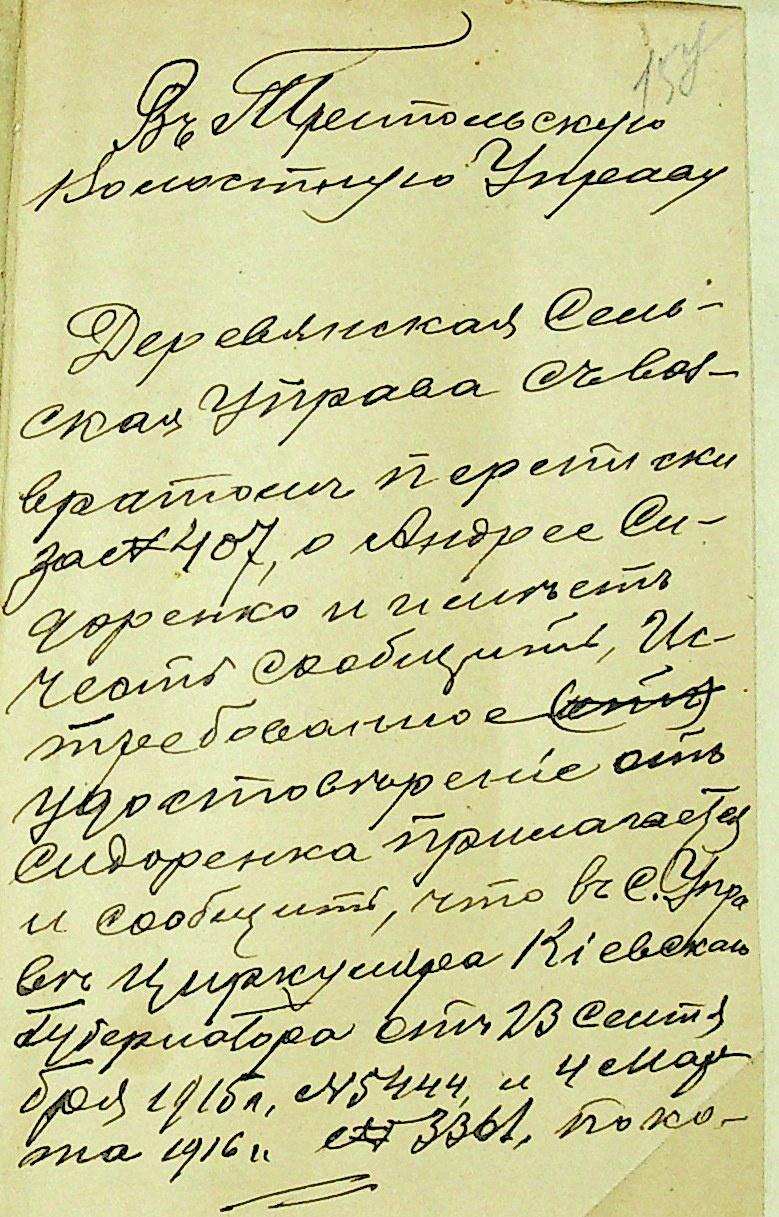 157
Въ Трипольскую
Волостную Управу
Деревянская Сель-
ская Управа съ воз-
вратомъ переписки
за № 407, о Андрее Си-
доренко и имѣетъ
честь сообщить, Ис-
требованное
удостовѣреніе отъ
Сидоренка прилагается
и сообщить, что въ С. Упра
вѣ циркуляра Кіевскаго
Губернатора отъ 23 Сентя
бря 1915 г., № 5444, и 4 Мар
та 1916 г. № 3361, по ко-